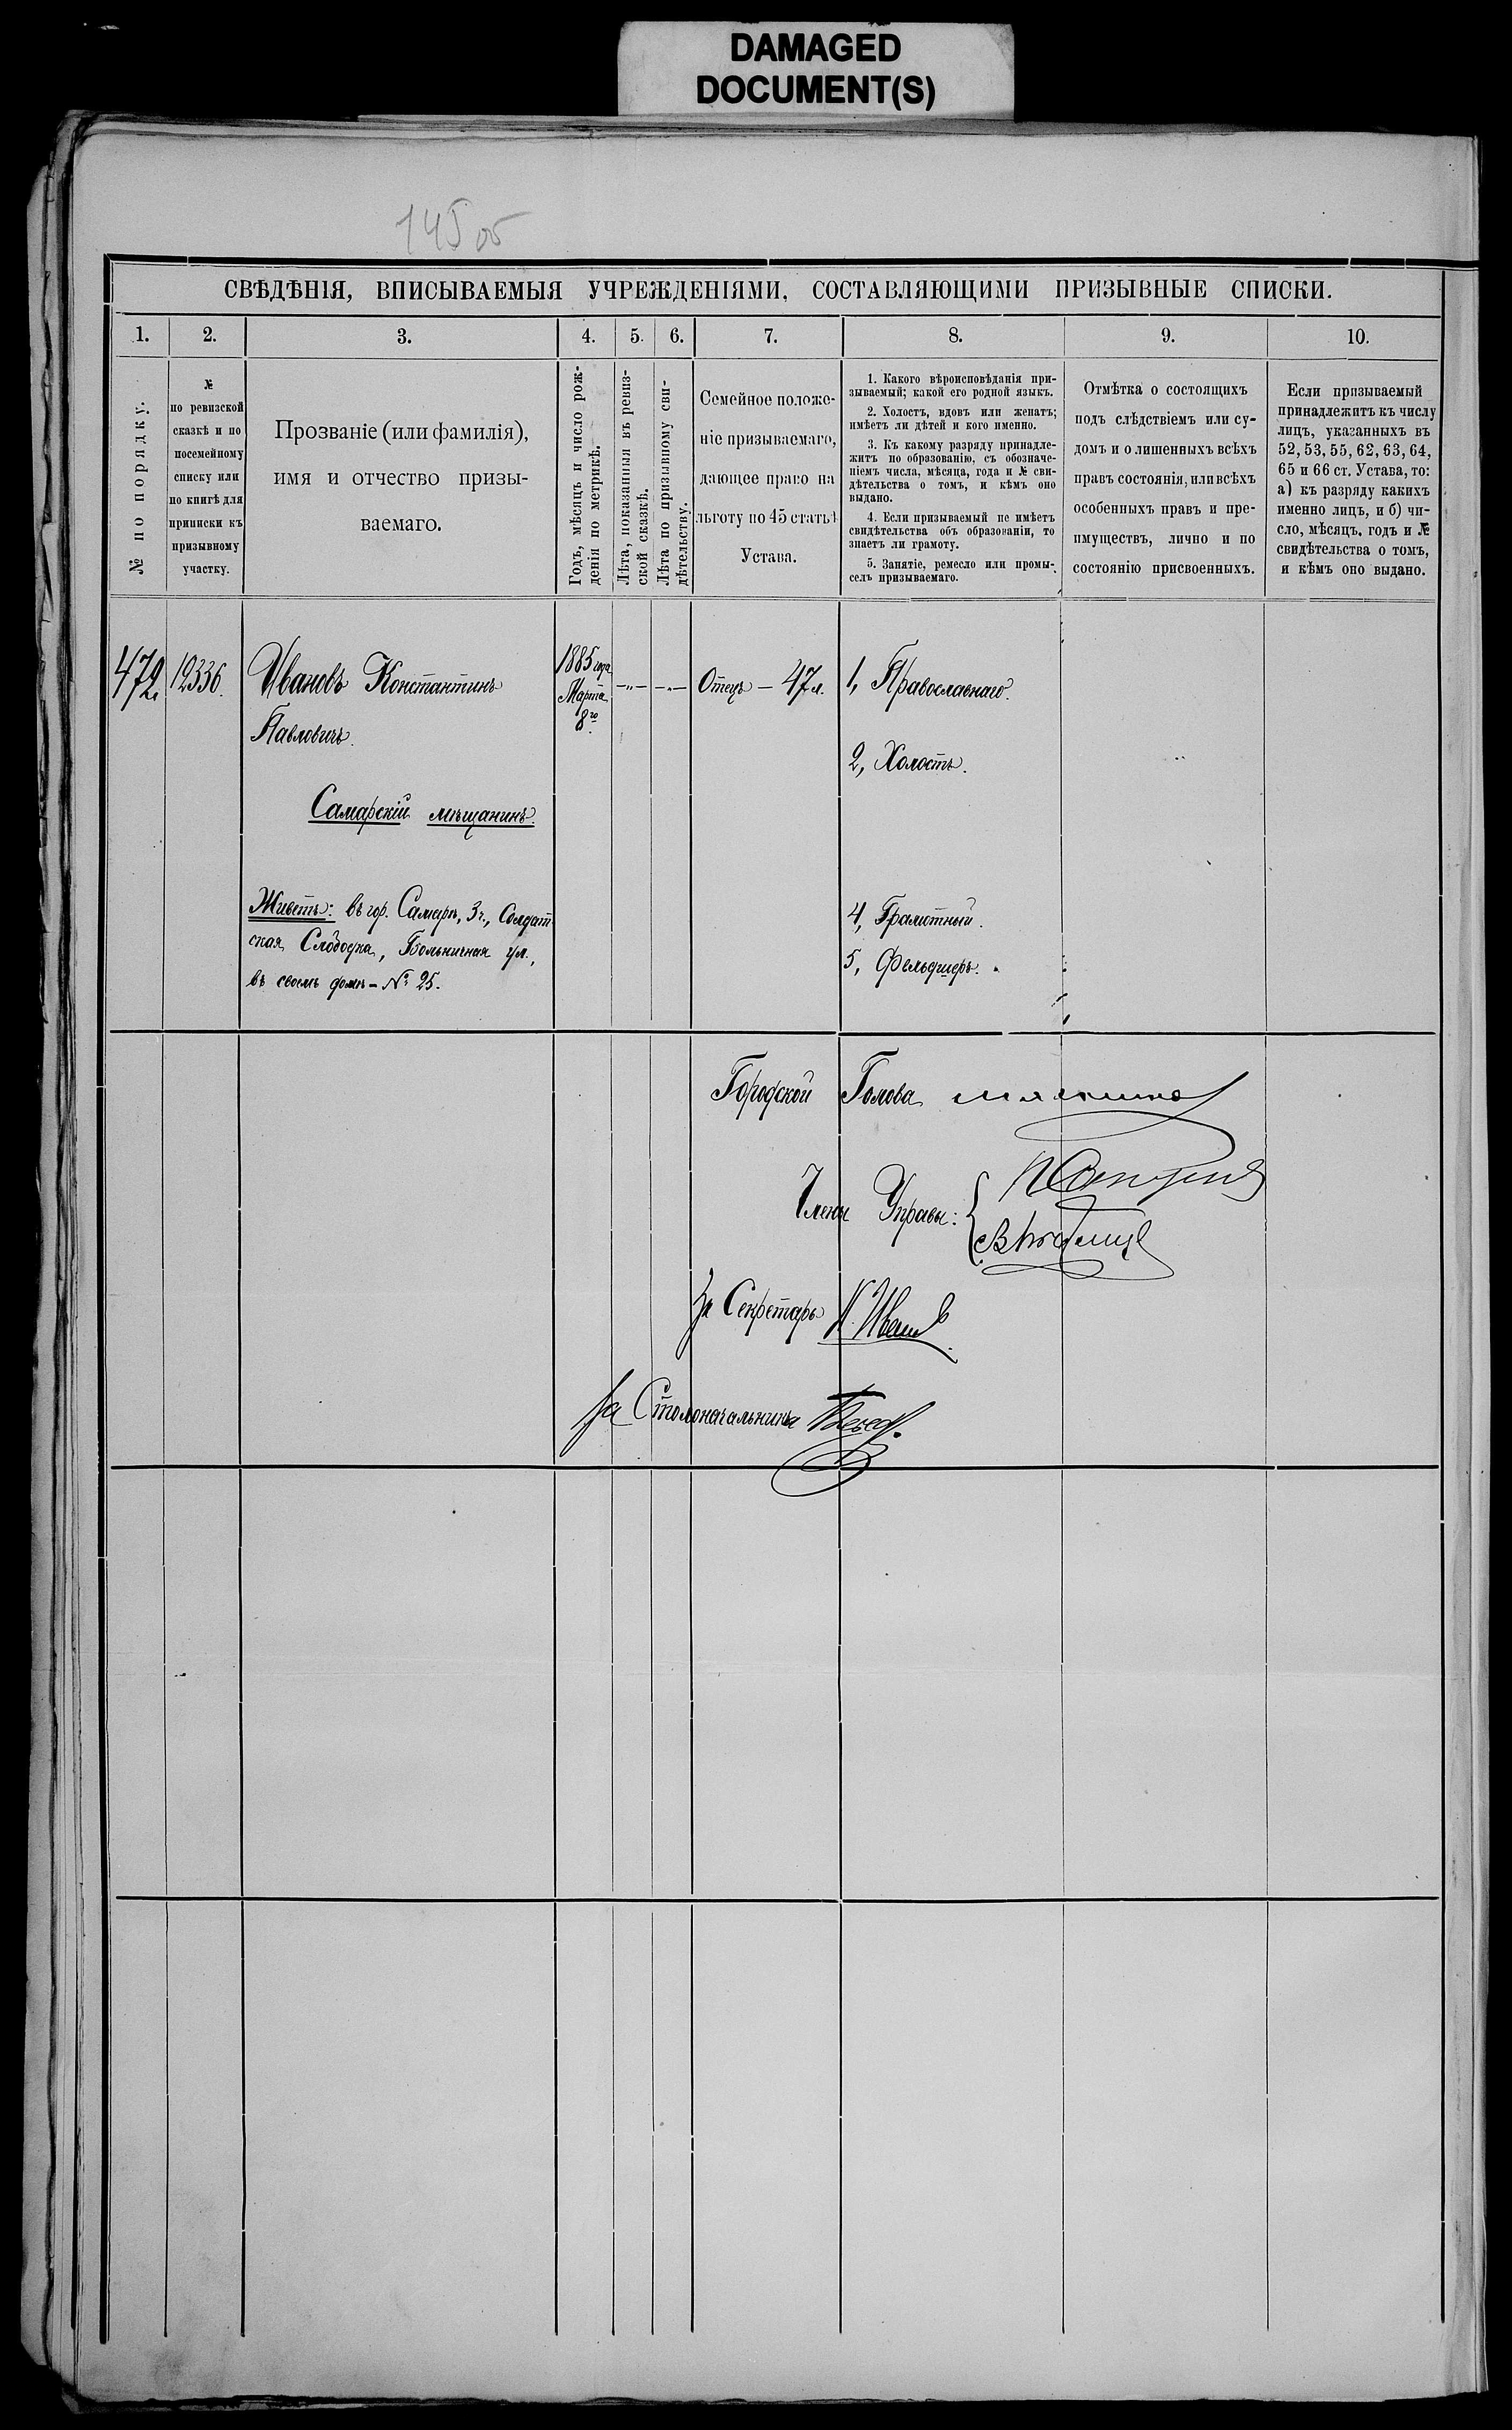 DAMAGED
DOCUMENT(S)
145 об
СВѢДѢНІЯ, ВПИСЫВАЕМЫЯ УЧРЕЖДЕНІЯМИ, СОСТАВЛЯЮЩИМИ ПРИЗЫВНЫЕ СПИСКИ.
1.
2.
3.
4.
5.
6.
7.
8.
9.
10.
№ по порядку.
№
по ревизской
сказкѣ и по
посемейному
списку или
по книгѣ для
приписки къ
призывному
участку.
Прозваніе (или фамилія),
имя и отчество призы-
ваемаго.
Годъ, мѣсяцъ и число рож-
денія по метрикѣ.
Лѣта, показанныя въ ревиз-
ской сказкѣ.
Лѣта по призывному сви-
дѣтельству.
Семейное положе-
ніе призываемаго,
дающее право на
льготу по 45 статьѣ
Устава.
1. Какого вѣроисповѣданія при-
зываемый; какой его родной языкъ.
2. Холостъ, вдовъ или женатъ;
имѣетъ ли дѣтей и кого именно.
3. Къ какому разряду принадле-
житъ по образованію, съ обозначе-
ніемъ числа, мѣсяца, года и № сви-
дѣтельства о томъ, и кѣмъ оно
выдано.
4. Если призываемый не имѣетъ
свидѣтельства объ образованіи, то
знаетъ ли грамоту.
5. Занятіе, ремесло или промы-
селъ призываемаго.
Отмѣтка о состоящихъ
подъ слѣдствіемъ или су-
домъ и о лишенныхъ всѣхъ
правъ состоянія, или всѣхъ
особенныхъ правъ и пре-
имуществъ, лично и по
состоянію присвоенныхъ.
Если призываемый
принадлежитъ къ числу
лицъ, указанныхъ въ
52, 53, 55, 62, 63, 64,
65 и 66 ст. Устава, то:
а) къ разряду какихъ
именно лицъ, и б) чи-
сло, мѣсяцъ, годъ и №
свидѣтельства о томъ,
и кѣмъ оно выдано.
472.
12336.
Ивановъ Константинъ
Павловичъ.
Самарскій мѣщанинъ.
Живетъ: въ гор. Самарѣ, 3 ч., Солдат-
ская Слободка, Больничная ул.,
въ своемъ домѣ - № 25.
1885 года
Марта
8го
-„-
-„-
Отецъ - 47 л.
1, Православнаго.
2, Холостъ.
4, Грамотный.
5, Фельдшеръ.
Городской Голова
Члены Управы:
За Секретарь К. Ивановъ
За Столоначальника